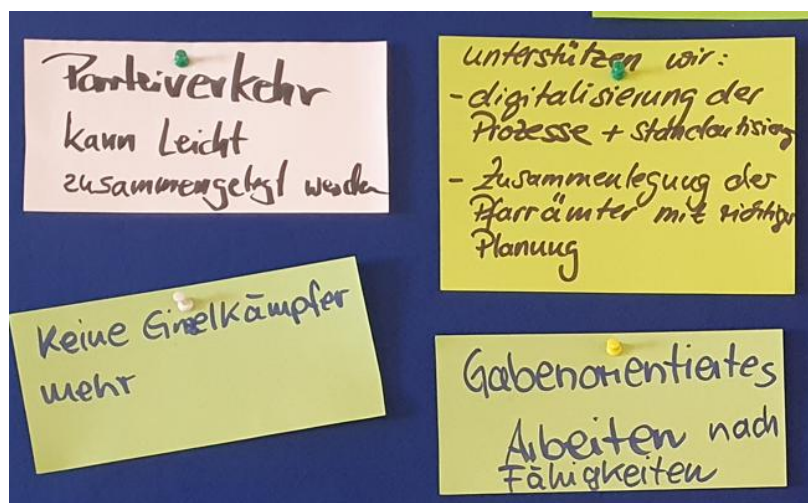 Parteiverkehr
kann Leicht
zusammengelegt werden
unterstützen wir:
- digitalisierung der
Prozesse + standartisierg
- Zusammenlegung der
Pfarrämter mit richtiger
Planung
Keine Einzelkämpfer
mehr
Gabenorientiertes
Arbeiten nach
Fähigkeiten